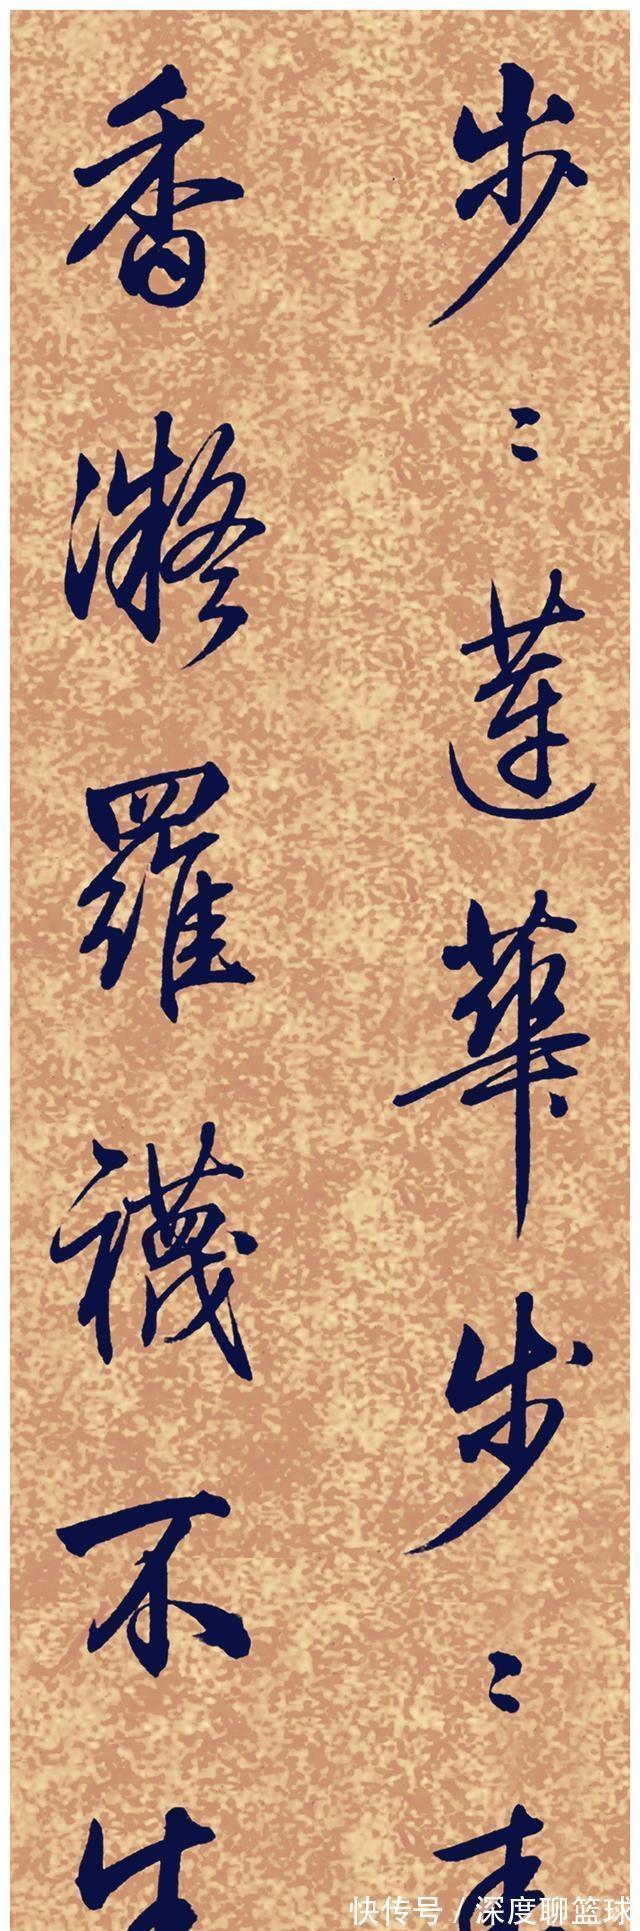 步〻蓮華步〻
香凝羅襪不生
快传号/深度聊篮球